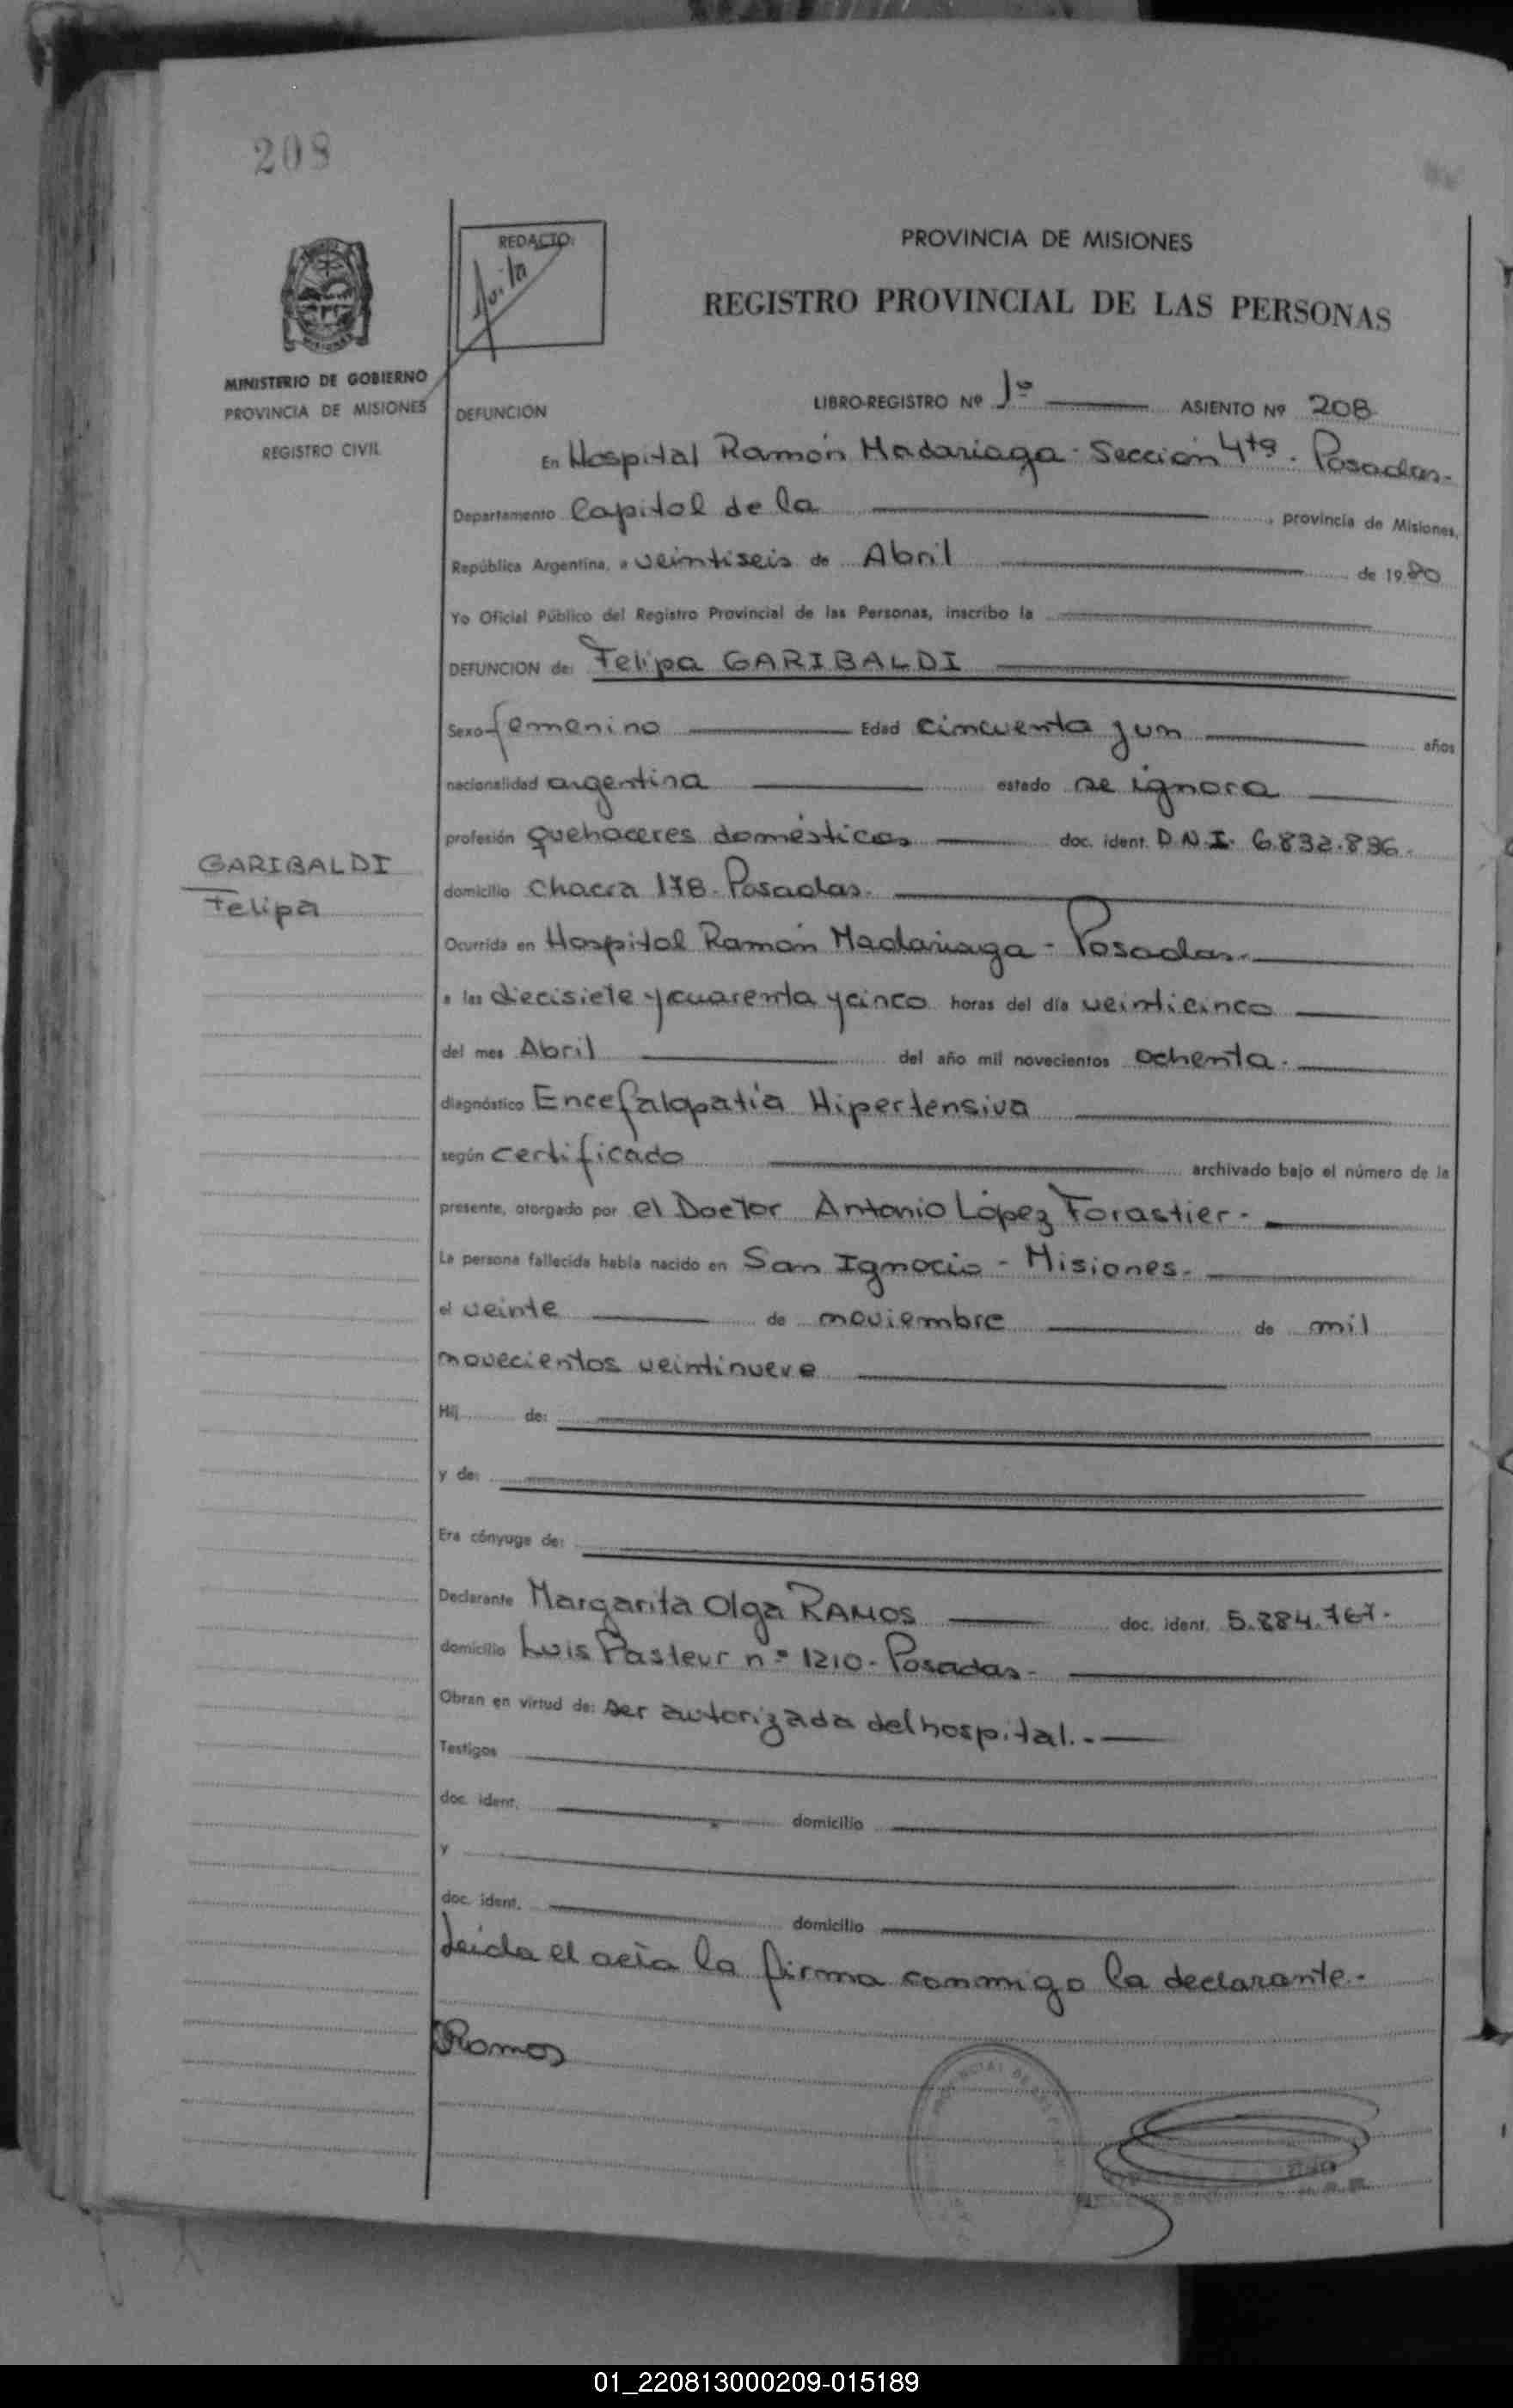 208
REDACTO:
PROVINCIA DE MISIONES
REGISTRO PROVINCIAL DE LAS PERSONAS
MINISTERIO DE GOBIERNO
PROVINCIA DE MISIONES
REGISTRO CIVIL
DEFUNCION
LIBRO-REGISTRO Nº 1º ASIENTO Nº 208
En Hospital Ramón Madariaga - Sección 4ta. Posadas-
Departamento Capital de la , provincia de Misiones,
República Argentina, a veintiseis de Abril de 1980
Yo Oficial Público del Registro Provincial de las Personas, inscribo la
DEFUNCION de: Felipa GARIBALDI
Sexo femenino Edad cincuenta y un años
nacionalidad argentina estado se ignora
profesión quehaceres domésticos doc. ident. D.N.I. 6.832.896.
GARIBALDI
Felipa
domicilio chacra 178. Posadas.
Ocurrida en Hospital Ramón Madariaga - Posadas.
a las diecisiete y cuarenta y cinco horas del día veinticinco
del mes Abril del año mil novecientos ochenta.
diagnóstico Encefalopatía Hipertensiva
según certificado archivado bajo el número de la
presente, otorgado por el Doctor Antonio López Forastier.
La persona fallecida había nacido en San Ignacio - Misiones.
el veinte de noviembre de mil
novecientos veintinueve
Hij de:
y de:
Era cónyuge de:
Declarante Margarita Olga RAMOS doc. ident. 5.884.767.
domicilio Luis Pasteur nº 1210 - Posadas-
Obran en virtud de: ser autorizada del hospital.-
Testigos
doc. ident. domicilio
y
doc. ident. domicilio
Leída el acta la firma conmigo la declarante.
Ramos
01_220813000209-015189